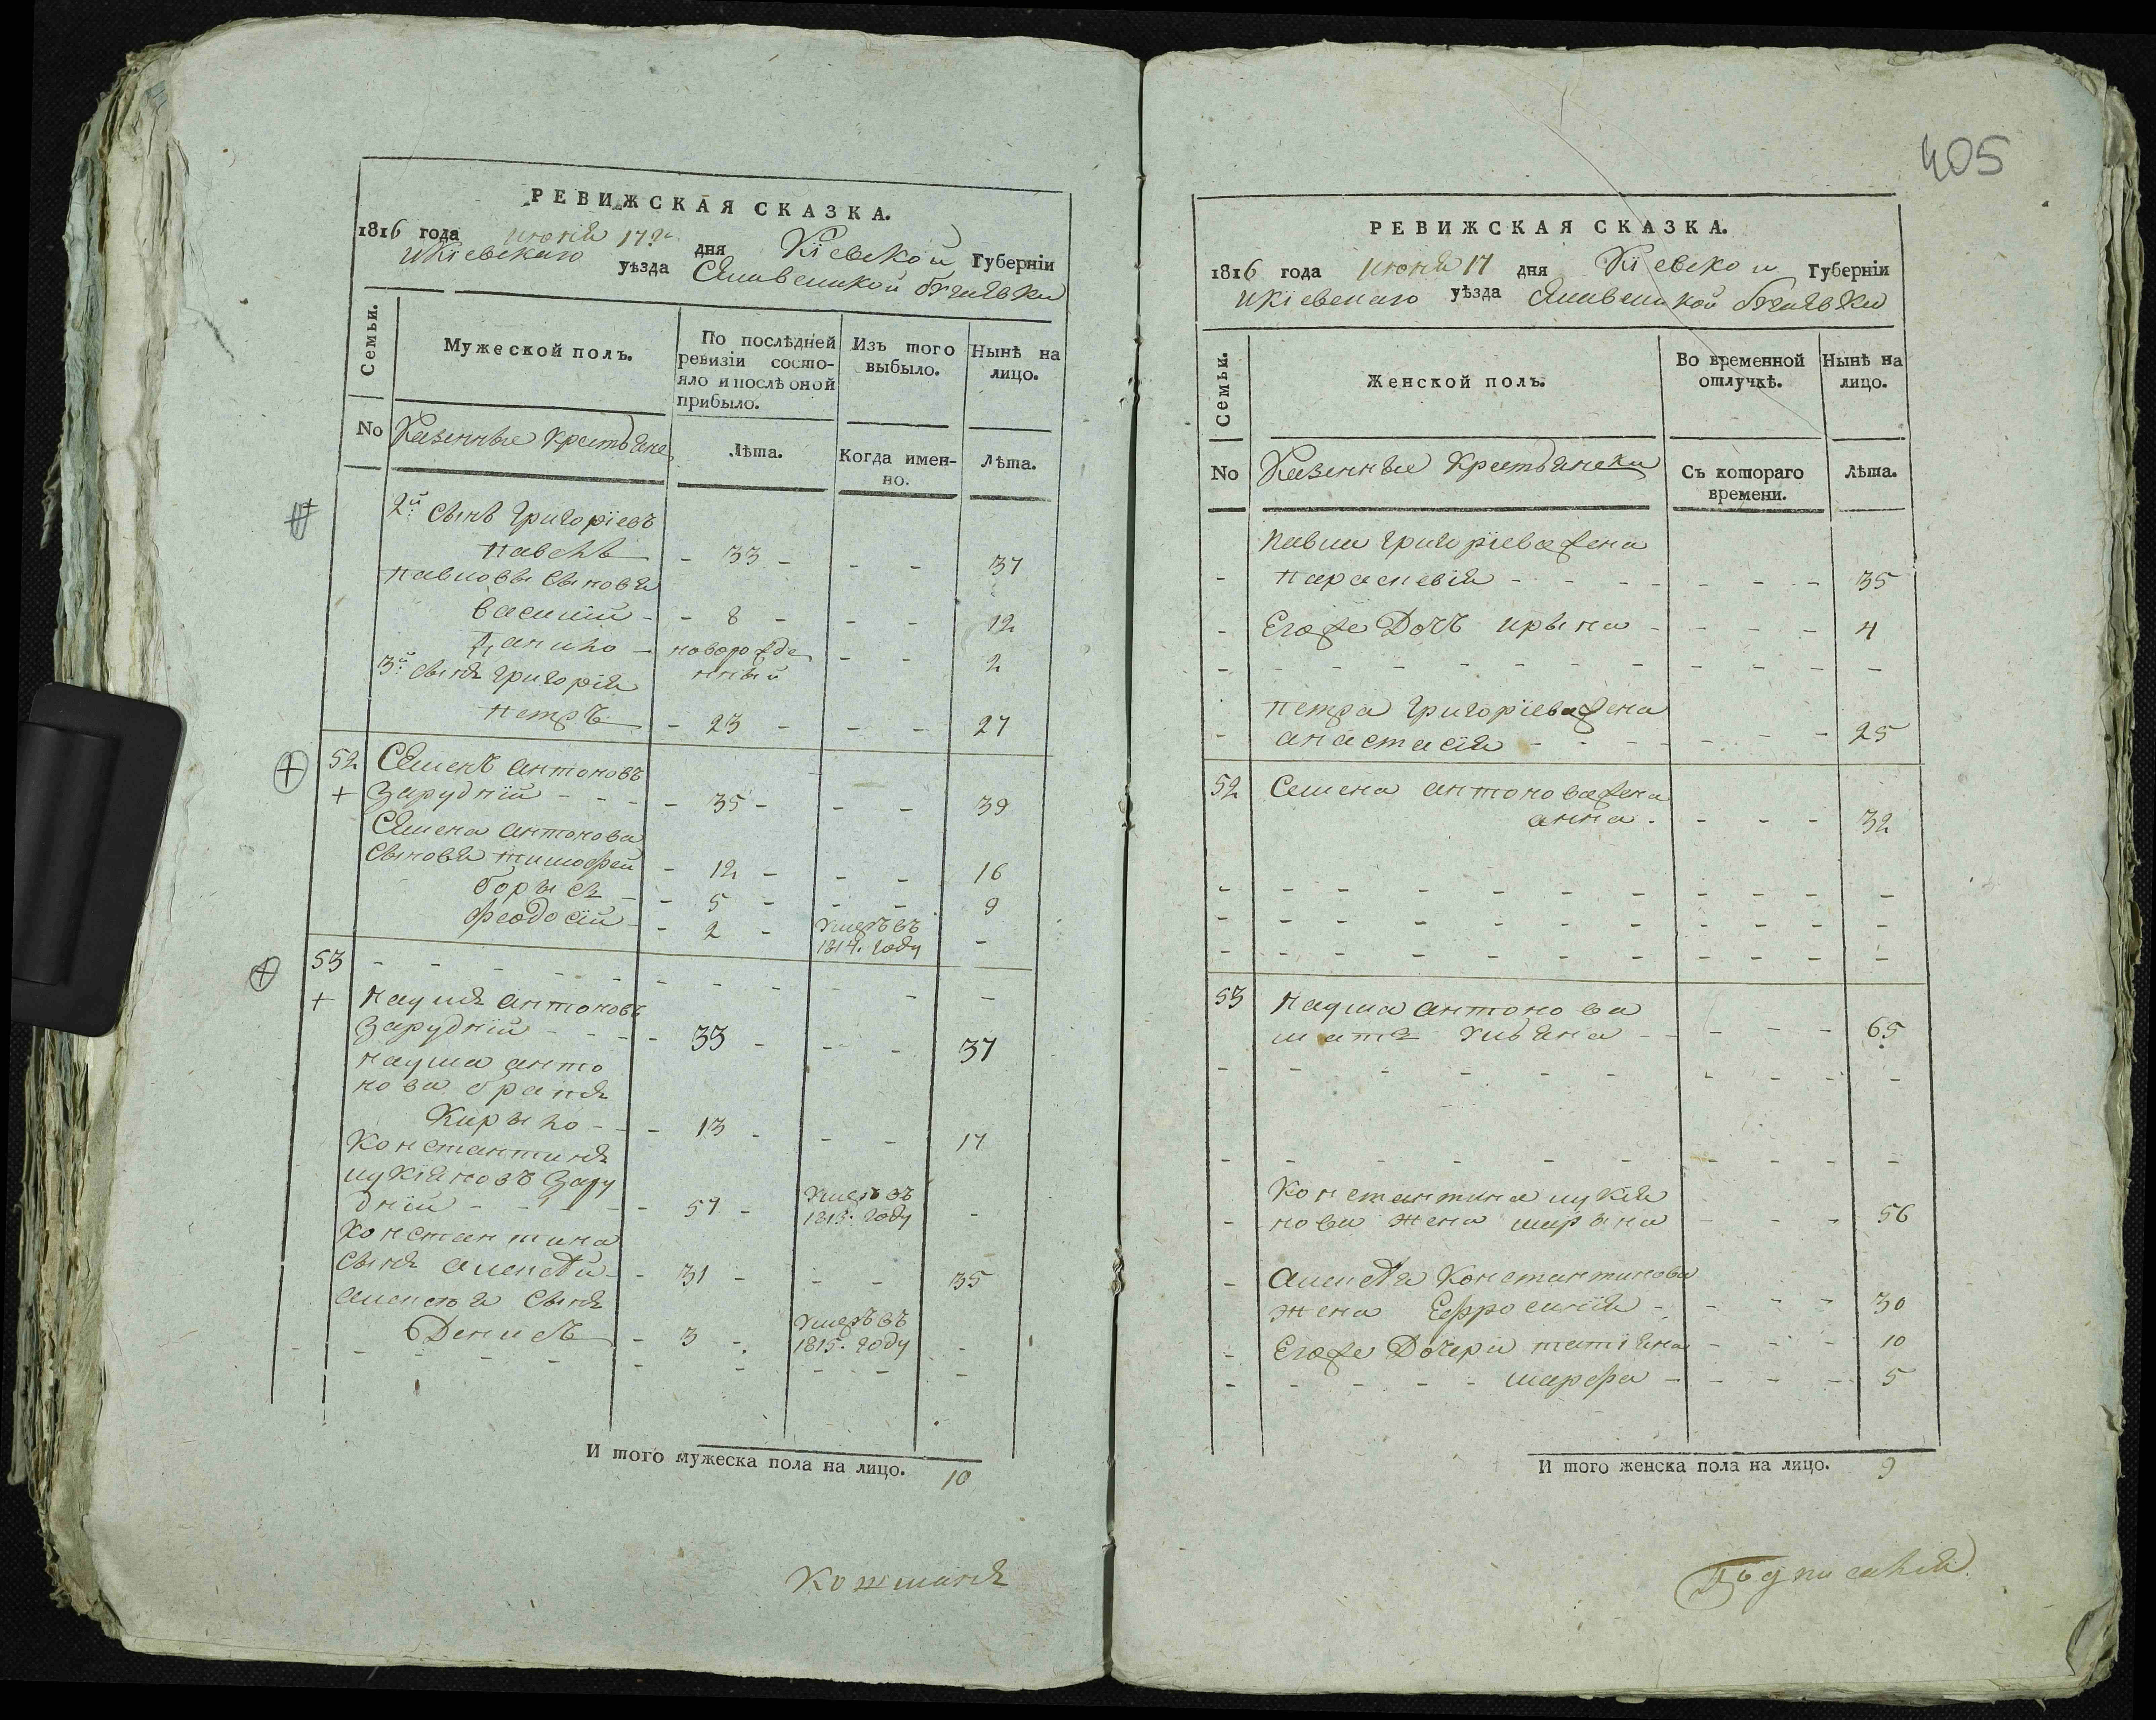 405
РЕВИЖСКАЯ СКАЗКА.
1816 года июня 17го дня Кіевской Губерніи
и Кіевскаго уѣзда
Семьи.
Мужеской полъ.
По послѣдней ревизіи состояло и послѣ оной прибыло.
Изъ того выбыло.
Нынѣ на лицо.
No Казенные Крестьяне
Лѣта.
Когда именно.
Лѣта.
2й сынъ Григоріевъ
Павелъ - 33 - - - 37
Павловы сыновя
Василий - - 8 - - - 12
Данило - новорожде - - 2
нный
3й сынъ Григорія
Петръ - 23 - - - 27
52 Семенъ Антоновъ
+ Зарудній - - - - 35 - - - 39
Семена Антонова
сыновя Тимофей - 12 - - - 16
Борысъ - - 5 - - - 9
Феодосій - - 2 - умеръ въ -
1814. году
53 - - - - - - - - - - -
+ Наумъ Антоновъ
Зарудній - - - - 33 - - - 37
Наума Анто
нова братъ
Кирыло - - - 13 - - - 17
Константинъ
Лукяновъ Зару
дній - - - - - 57 - умеръ въ -
1813. году
Константина
сынъ Алексѣй - - 31 - - - 35
Алексѣя сынъ
Денисъ - 3 - умеръ въ -
1815. году
- - - - - - - - - -
И того мужеска пола на лицо. 10
РЕВИЖСКАЯ СКАЗКА.
1816 года июня 17 дня Кіевской Губерніи
и Кіевскаго уѣзда
Семьи.
Женской полъ.
Во временной отлучкѣ.
Нынѣ на лицо.
No Казенные Крестьянски
Съ котораго времени.
Лѣта.
Павла Григоріева жена
- Параскевія - - - - - - - 35
- Егоже Дочъ Ирына - - - - - 4
- - - - - - - - - - - -
Петра Григоріева жена
- Анастасія - - - - - - 25
52 Семена Антонова жена
Анна - - - - 32
- - - - - - - - - - - -
- - - - - - - - - - - -
- - - - - - - - - - - -
53 Наума Антонова
мать Улияна - - - - - 65
- - - - - - - - - - -
- - - - - - - - - - -
Константина Лукя
- нова жена Марына - - - 56
- Алексѣя Константинова
жена Ефросинія - - - - 30
- Егоже Дочери Татіяна - - - 10
- - - - - Марфа - - - - 5
И того женска пола на лицо. 9